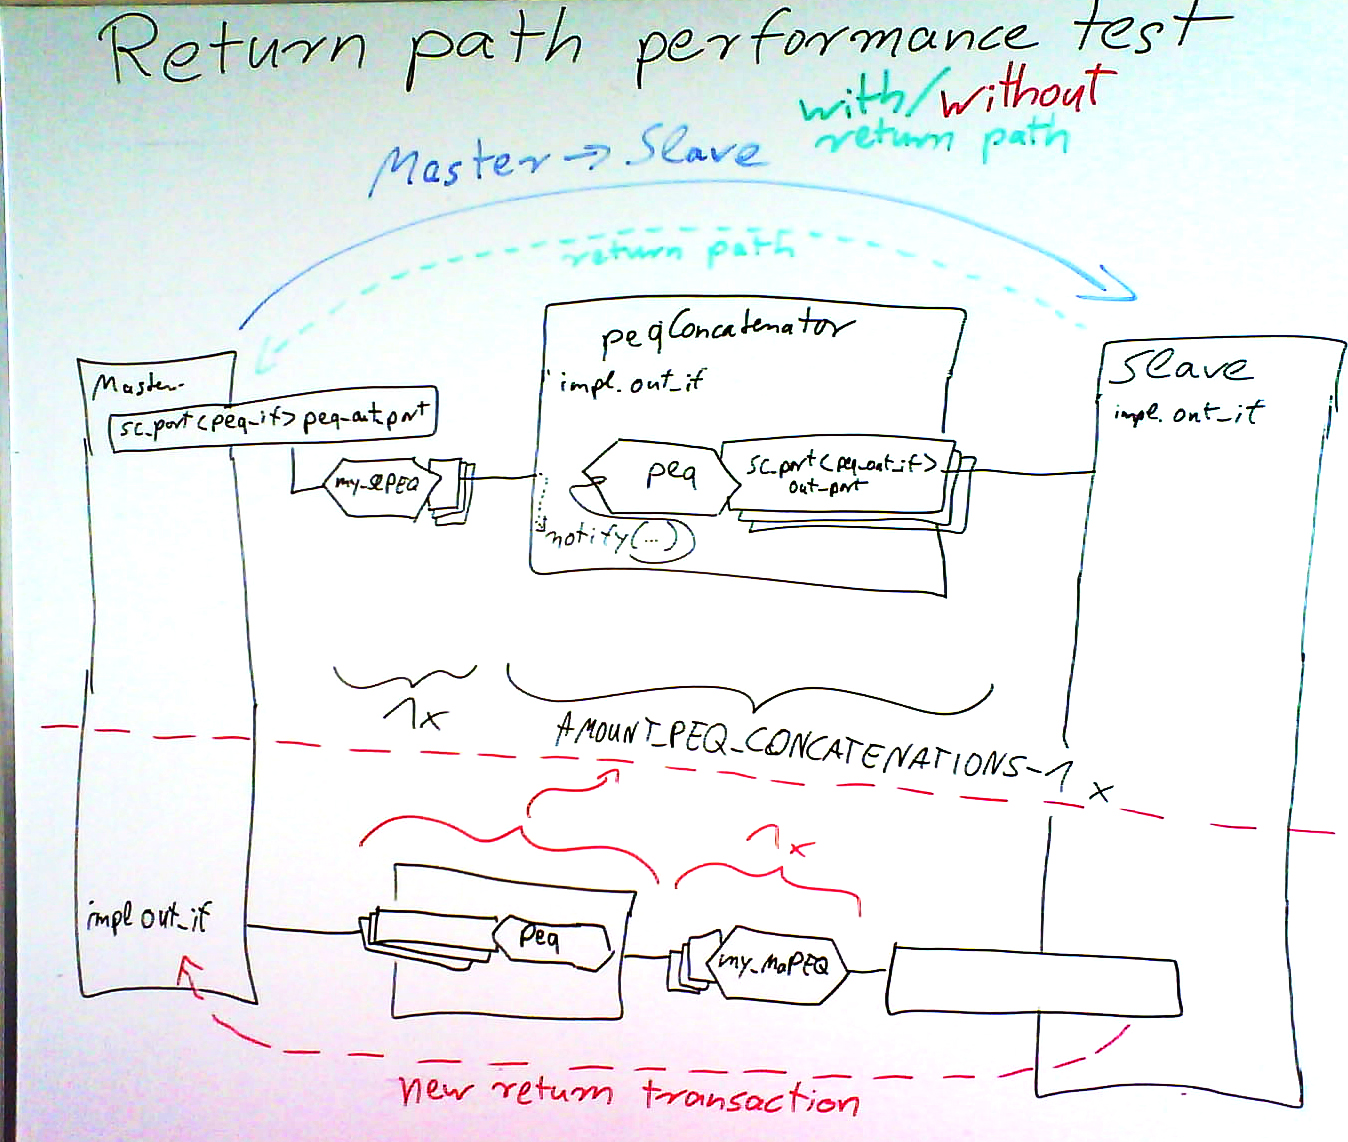 Return path performance test
with/without
return path
Master → Slave
return path
peqConcatenator
impl. out_if
Master
sc_port<peq_if> peq_out_port
Slave
impl. out_if
my_slPEQ
peq
sc_port<peq_out_if>
out_port
notify(...)
1x
AMOUNT_PEQ_CONCATENATIONS-1 x
1x
impl out_if
peq
my_maPEQ
new return transaction